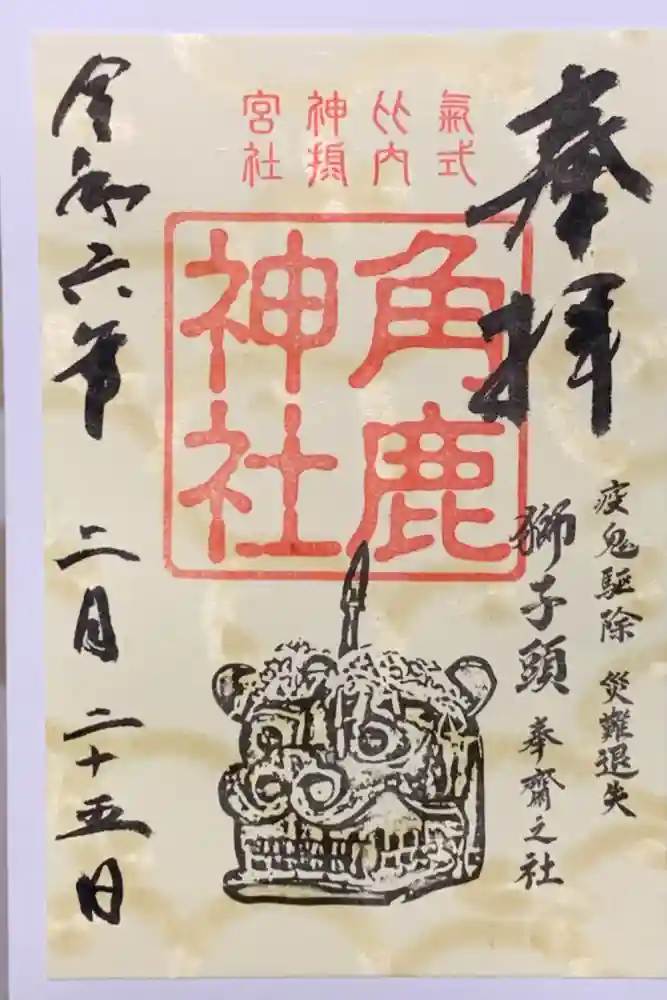 奉拝
疫鬼驅除 災難退失
獅子頭 奉齋之社
氣比神宮
式内摂社
角鹿
神社
令和六年 二月二十五日